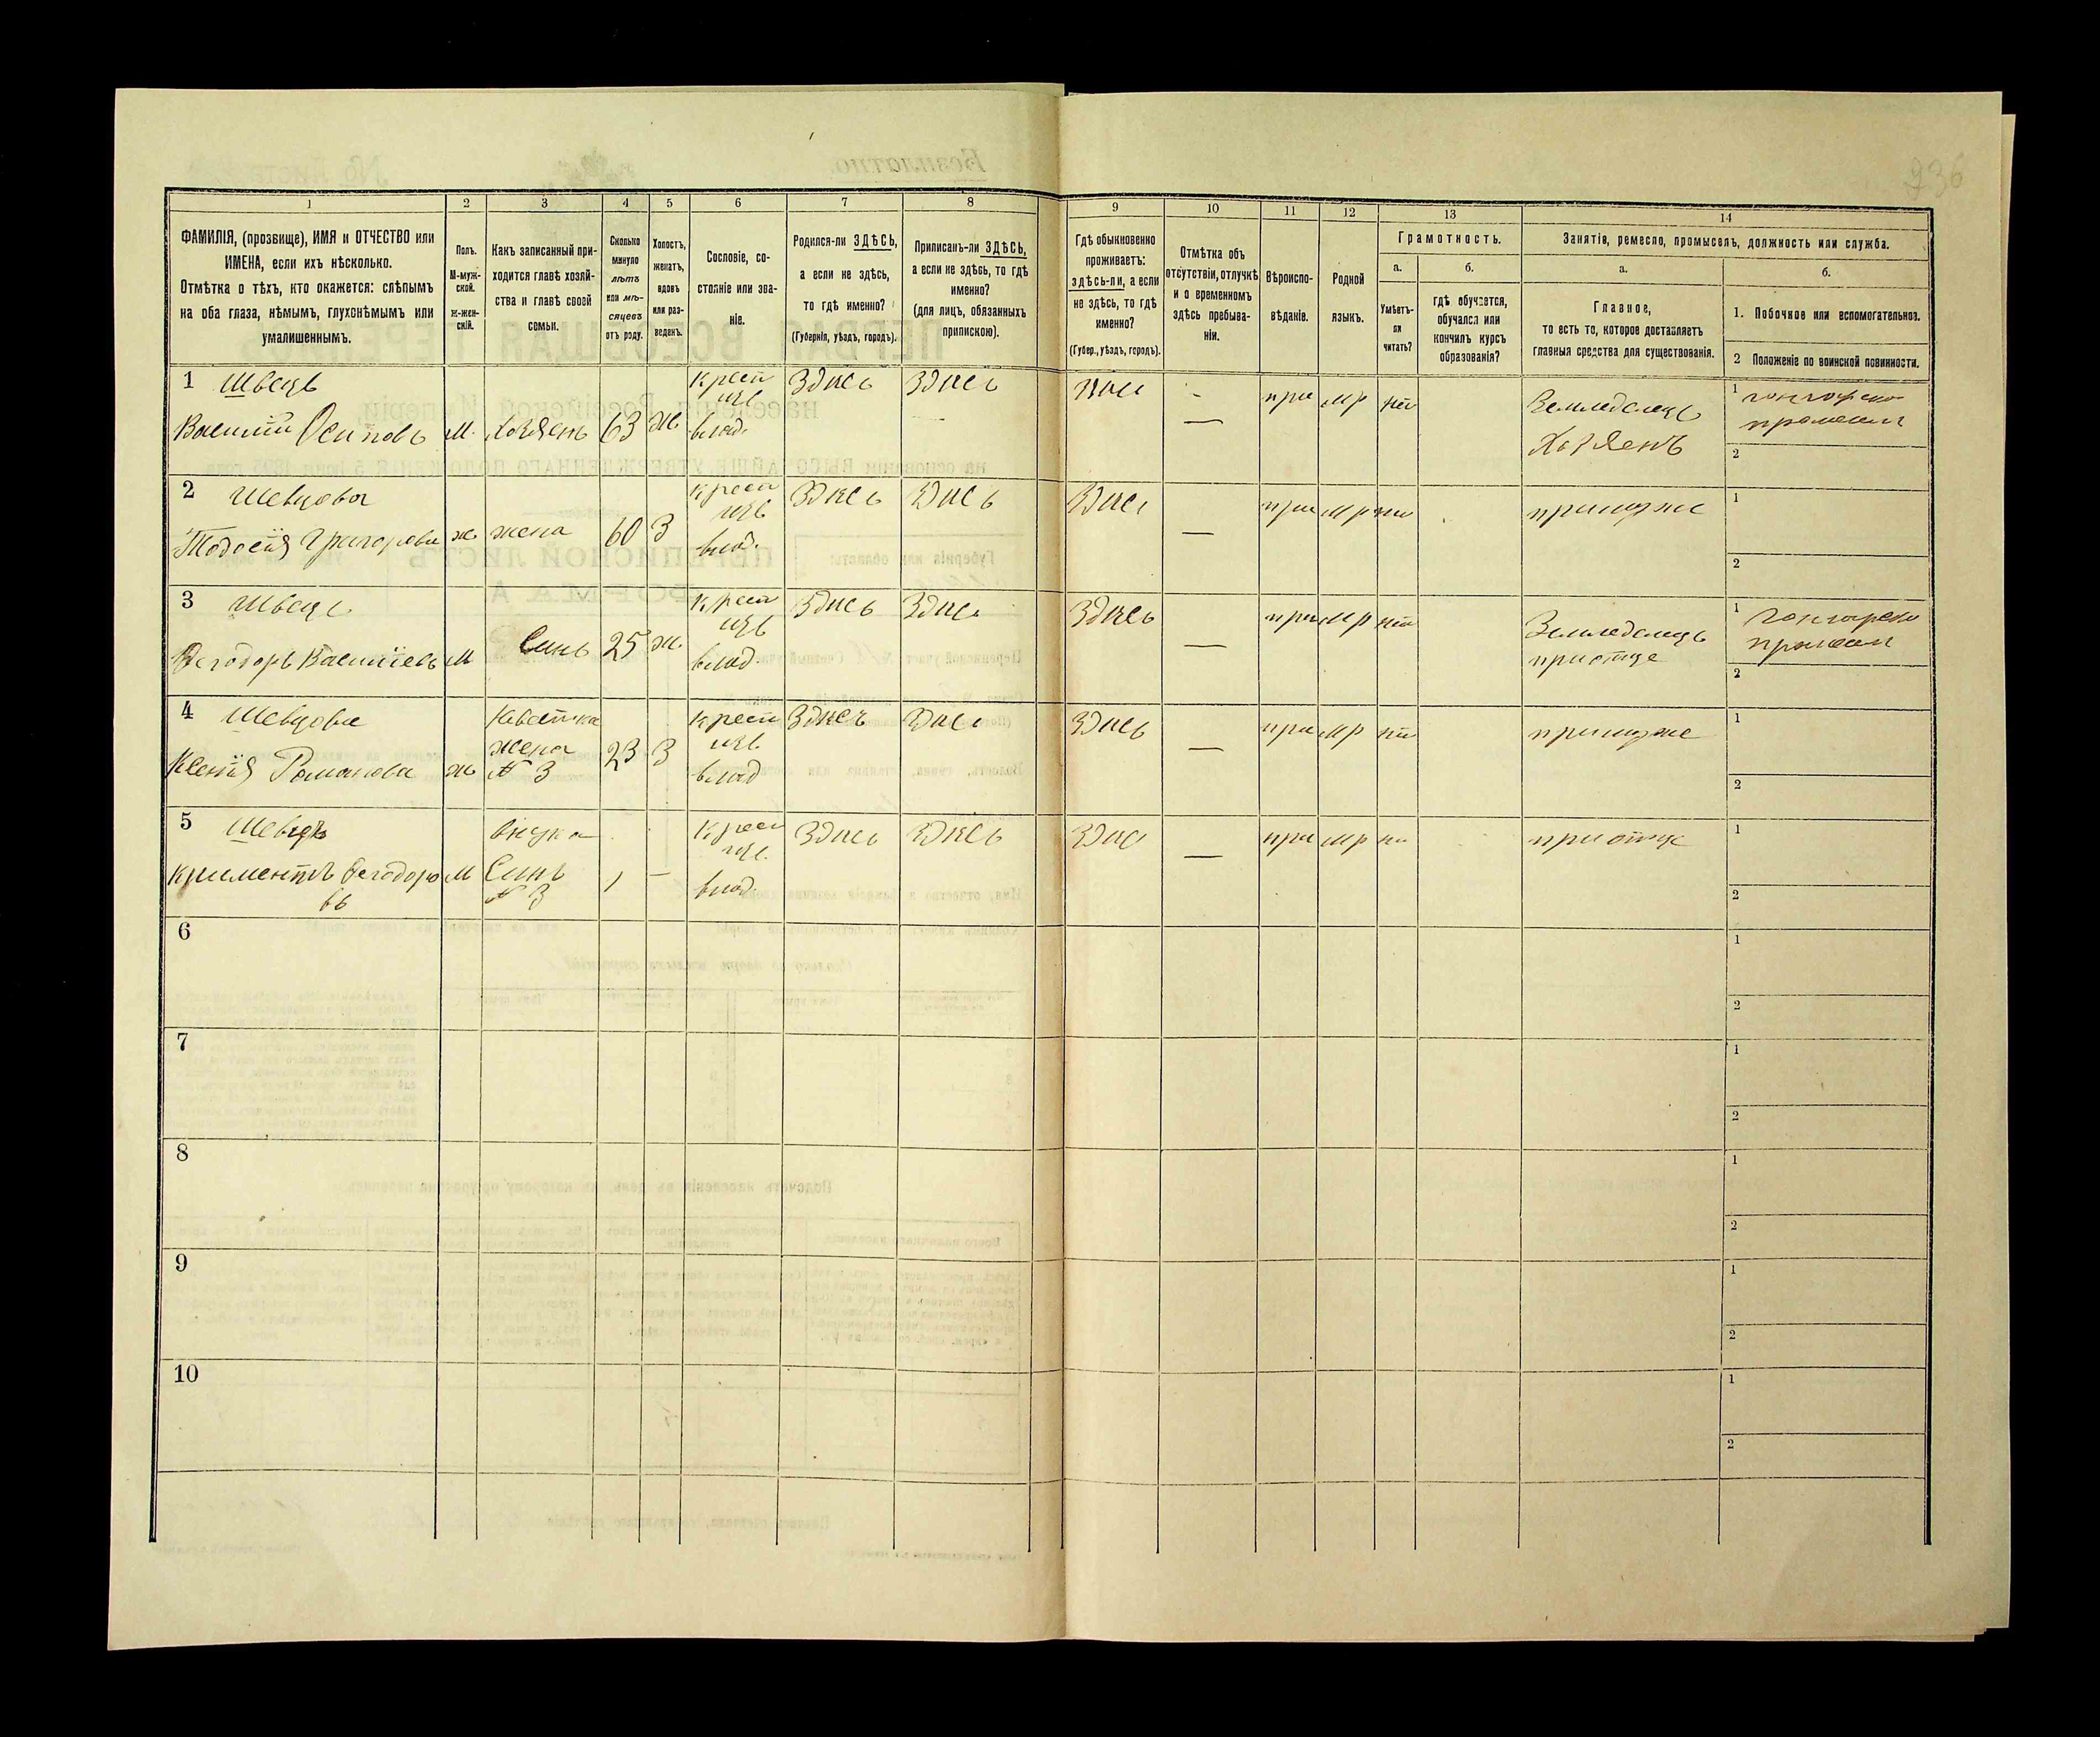 936
1 2 3 4 5 6 7 8 9 10 11 12 13 14
ФАМИЛІЯ, (прозвище), ИМЯ и ОТЧЕСТВО или
ИМЕНА, если ихъ нѣсколько.
Отмѣтка о тѣхъ, кто окажется: слѣпымъ
на оба глаза, нѣмымъ, глухонѣмымъ или
умалишеннымъ.
Полъ.
М-муж-
ской.
Ж-жен-
скій.
Какъ записанный при-
ходится главѣ хозяй-
ства и главѣ своей
семьи.
Сколько
минуло
лѣтъ
или мѣ-
сяцевъ
отъ роду.
Холостъ,
женатъ,
вдовъ
или раз-
веденъ.
Сословіе, со-
стояніе или зва-
ніе.
Родился-ли ЗДѢСЬ,
а если не здѣсь,
то гдѣ именно?
(Губернія, уѣздъ, городъ).
Приписанъ-ли ЗДѢСЬ,
а если не здѣсь, то гдѣ
именно?
(для лицъ, обязанныхъ
припискою).
Гдѣ обыкновенно
проживаетъ:
здѣсь-ли, а если
не здѣсь, то гдѣ
именно?
(Губер., уѣздъ, городъ).
Отмѣтка объ
отсутствіи, отлучкѣ
и о временномъ
здѣсь пребыва-
ніи.
Вѣроиспо-
вѣданіе.
Родной
языкъ.
Грамотность.
а.
Умѣетъ-
ли
читать?
б.
гдѣ обучается,
обучался или
кончилъ курсъ
образованія?
Занятіе, ремесло, промыселъ, должность или служба.
а.
Главное,
то есть то, которое доставляетъ
главныя средства для существованія.
б.
1. Побочное или вспомогательное.
2 Положеніе по воинской повинности.
1 Швецъ
Василій Осиповъ М. Хозяенъ 63 ж.
крест
изъ
влад.
Здись Здись
при мр нт
Земледелецъ
Хозяенъ
1 гончарски
промесел
2
2 Шевцова
Тодосія Григорова ж жена 60 З
крест
изъ
влад.
Здись Здись Здись — при мр нт при муже
1
2
3 Швець
Фегодоръ Василіевъ М Синъ 25 ж.
крест
изъ
влад.
Здись Здись Здись — при мр нт
Земледелецъ
при отце
1 гончарски
промесел
2
4 Шевцова
Ксенія Романова ж
жена
№ 3
23 З
крест
изъ
влад
Здись Здись Здись — при мр нт при муже
1
2
5 Шевцъ
Криментъ Фегодоро М
въ
внука
Синъ
№ 3
1 —
крест
изъ
влад.
Здись Здись — при мр при отце
1
2
6
1
2
7
1
2
8
1
2
9
1
2
10
1
2